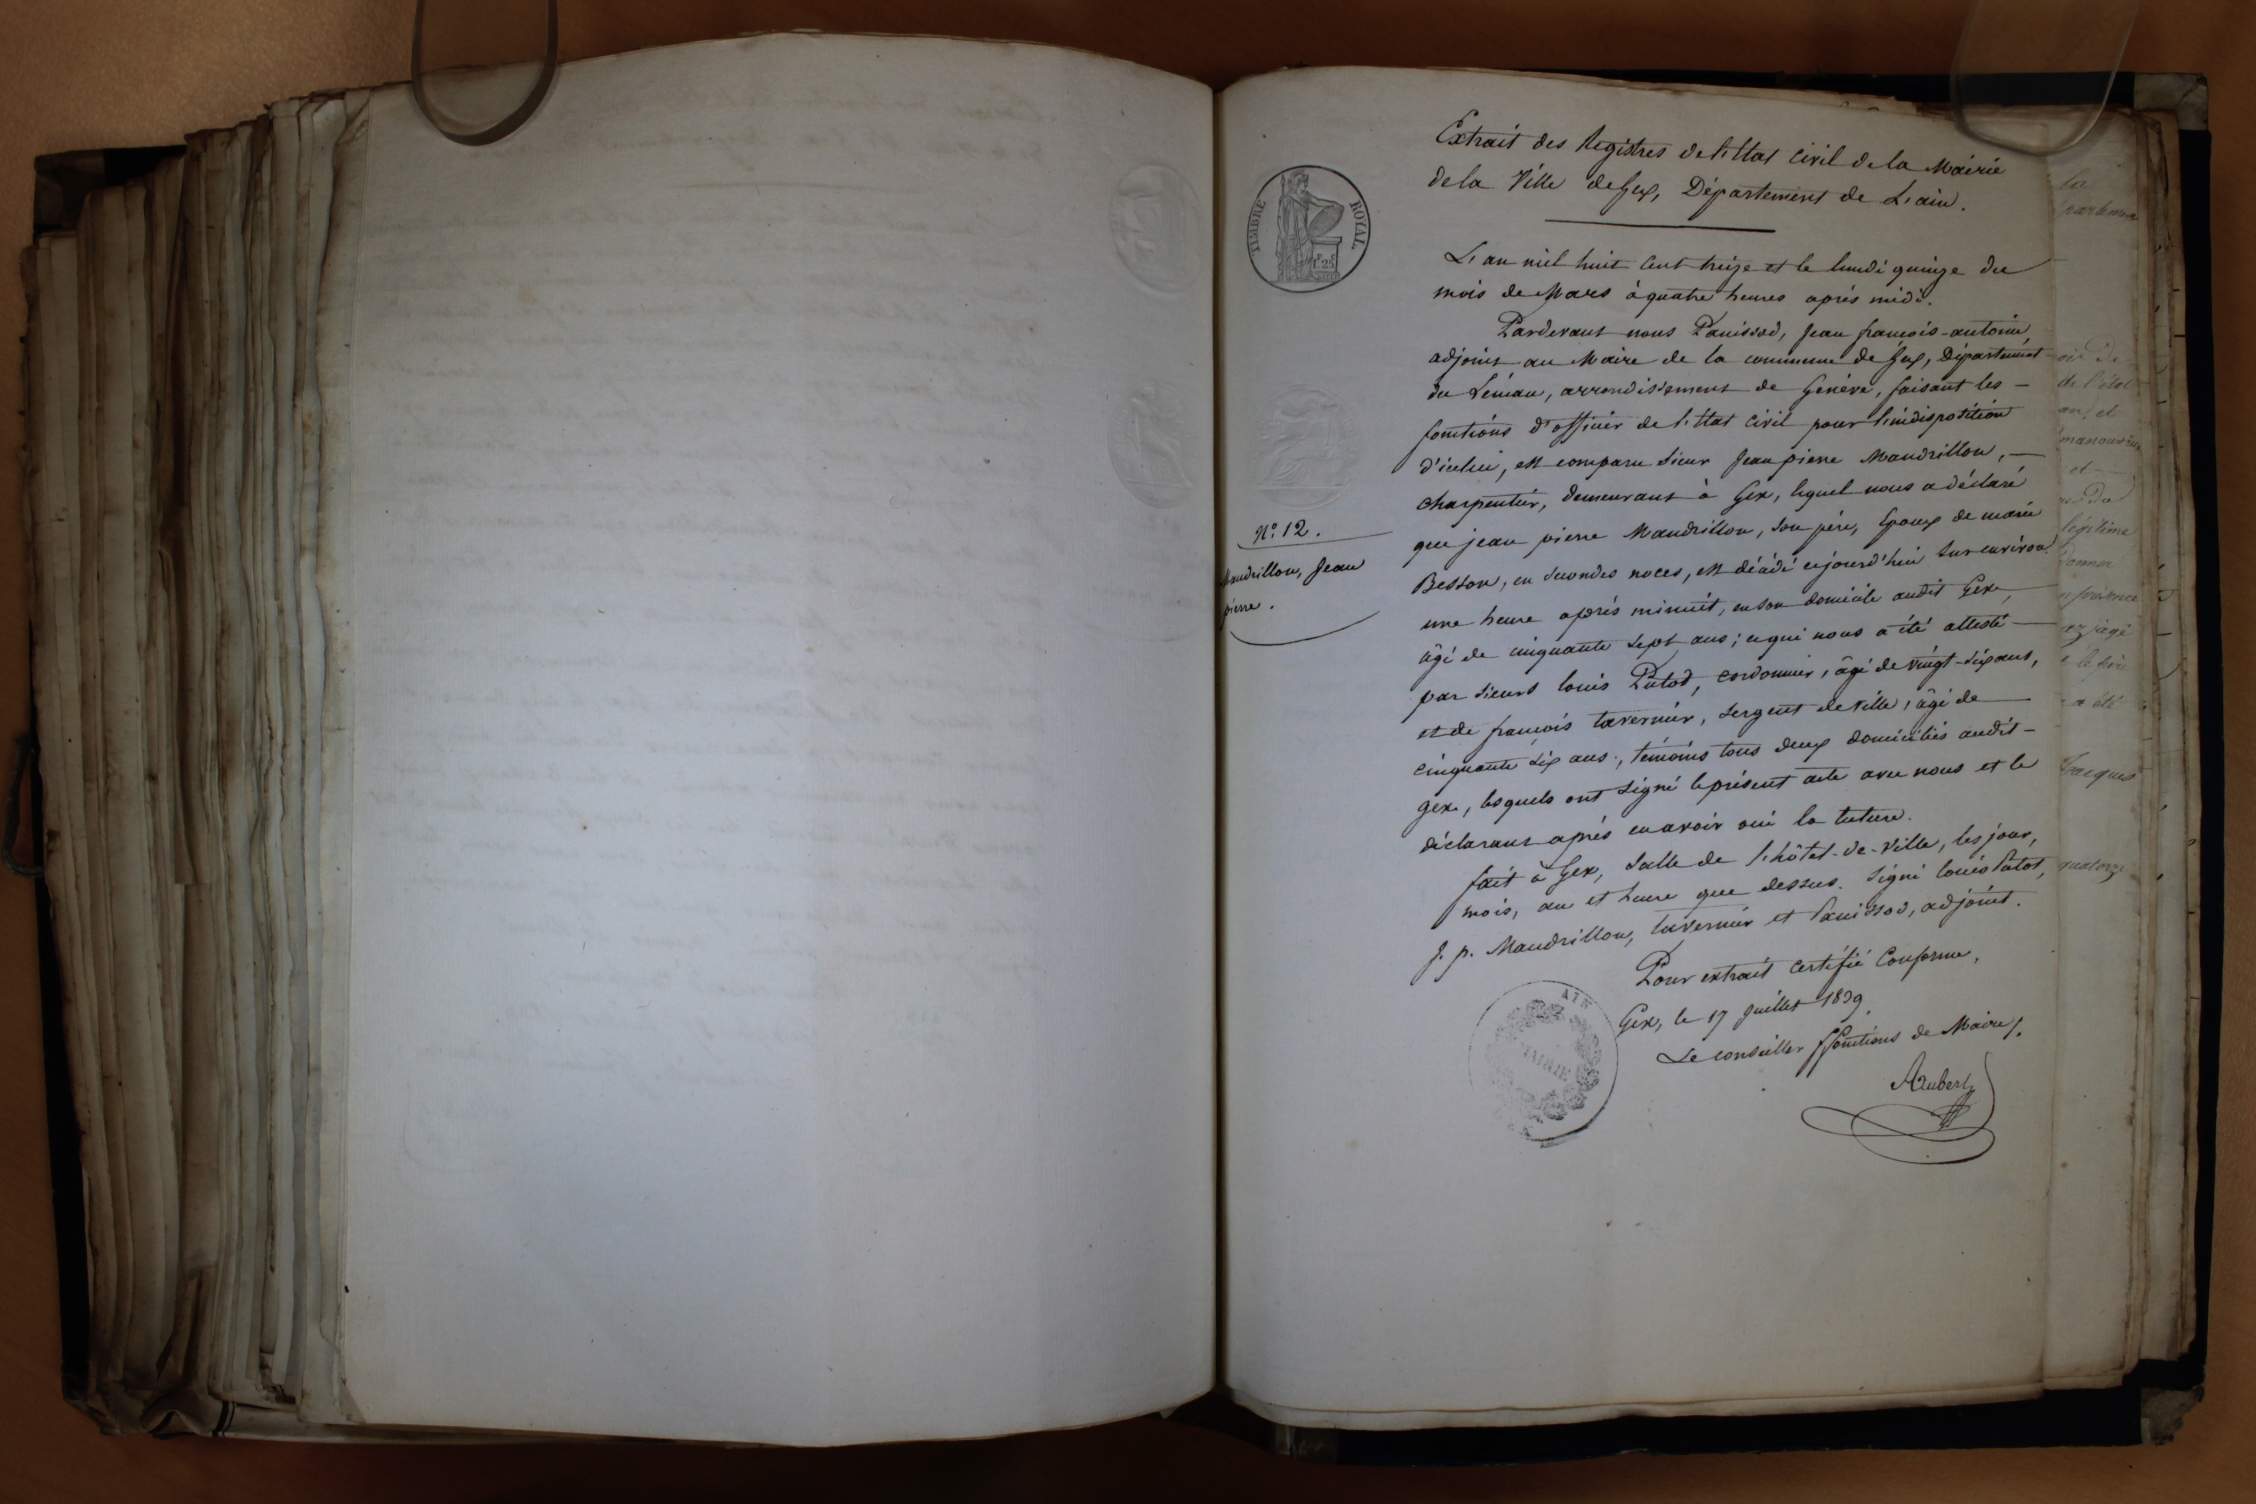 Extrait des Registres de l'Etat Civil de la Mairie
de la Ville de Gex, Département de L'ain.
TIMBRE ROYAL
L'an mil huit Cent treize et le lundi quinze du
mois de Mars à quatre heures après midi.
Pardevant nous Panissod, Jean françois-antoine,
adjoint au Maire de la commune de Gex, Département
du Léman, arrondissement de Genève, faisant les —
fonctions d'officier de l'Etat Civil pour l'indisposition
d'icelui, est comparu Sieur Jean pierre Mandrillon, —
Charpentier, demeurant à Gex, lequel nous a déclaré
que jean pierre Mandrillon, son père, Epoux de marie
Besson, en secondes noces, est décédé cejourd'hui sur environ
une heure après minuit, en son domicile audit Gex, —
âgé de cinquante sept ans; ce qui nous a été attesté —
par Sieurs louis Patod, cordonnier, âgé de vingt-six ans,
et de françois tavernier, Sergent de ville, âgé de —
cinquante six ans, témoins tous deux domiciliés audit —
Gex, lesquels ont Signé le présent acte avec nous et le
déclarant après en avoir oui la lecture.
fait à Gex, Salle de l'hôtel-de-Ville, les jour,
mois, an et heure que dessus. Signé louis Patot,
J. p. Mandrillon, tavernier et Panissod, adjoint.
Pour extrait Certifié Conforme,
Gex, le 17 Juillet 1839.
Le conseiller ffonctions de Maire/.
Aubert
N.° 12.
Mandrillon, Jean
pierre.
AIN
MAIRIE
la
de l'état
légitime
Jacques
quatorze